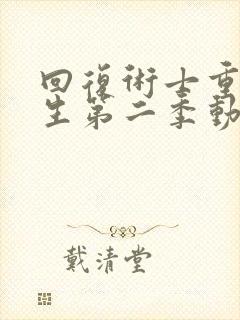 回復術士重
生第二季動
戴清堂